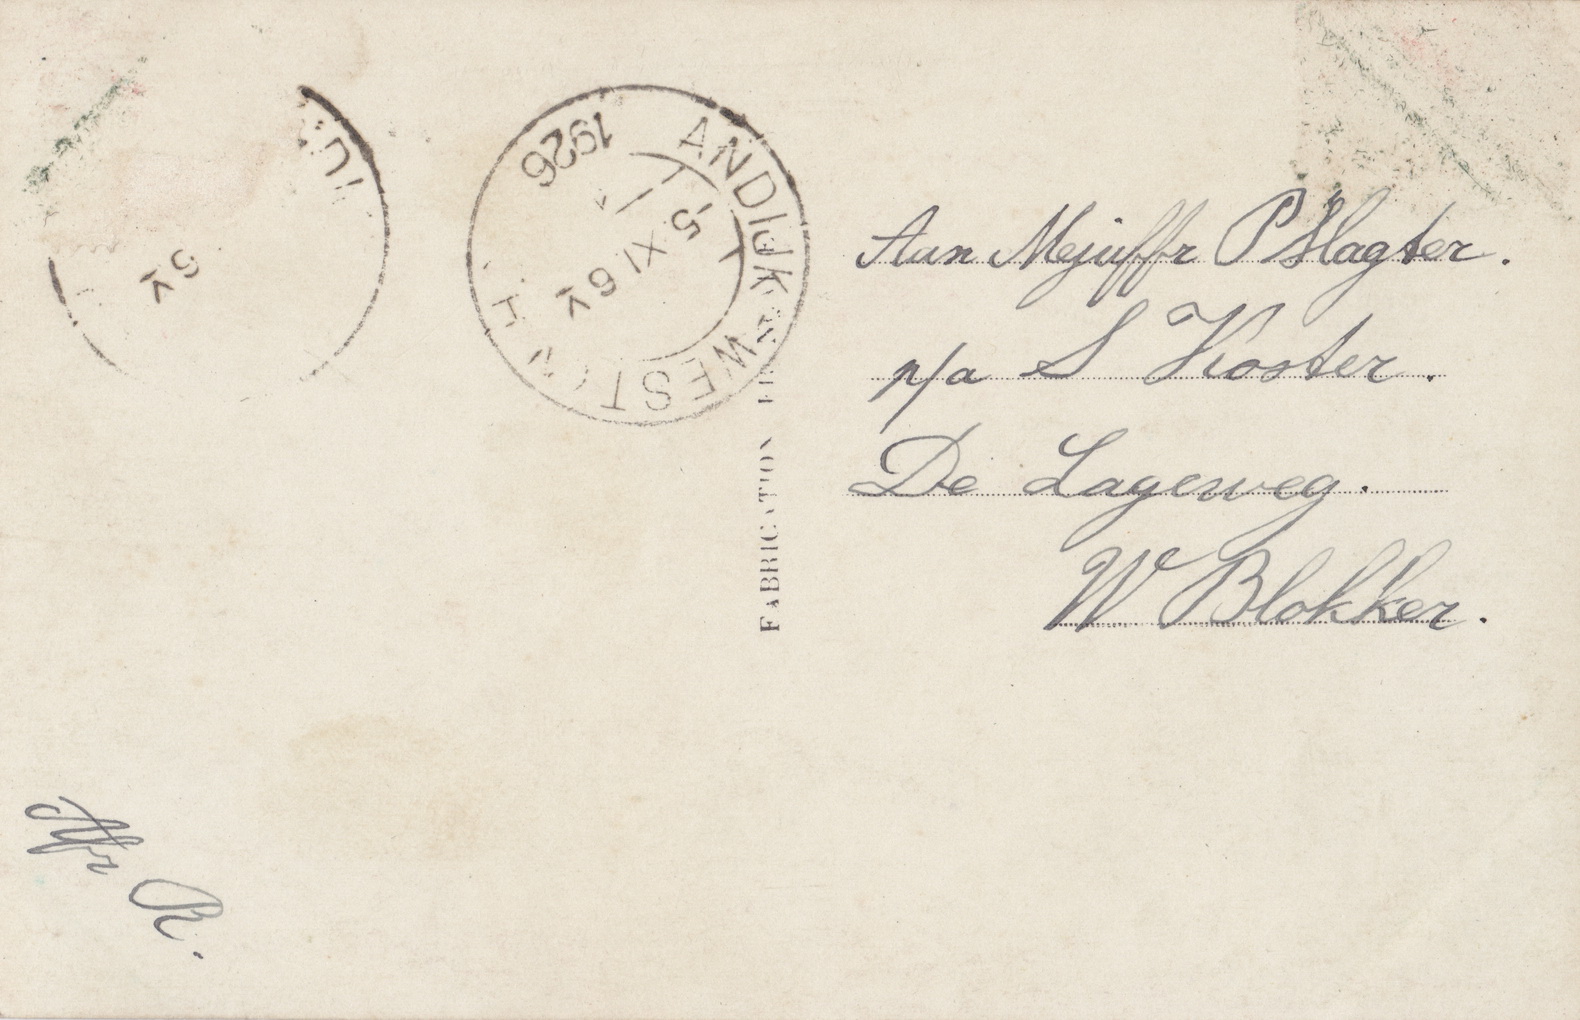 ANDIJK-WEST (N.H.
1926
-5 XI 6V
6V
FABRICATION
Aan Mejuffr P Slagter.
p/a S Koster.
De Lageweg.
W Blokker.
Afr R.